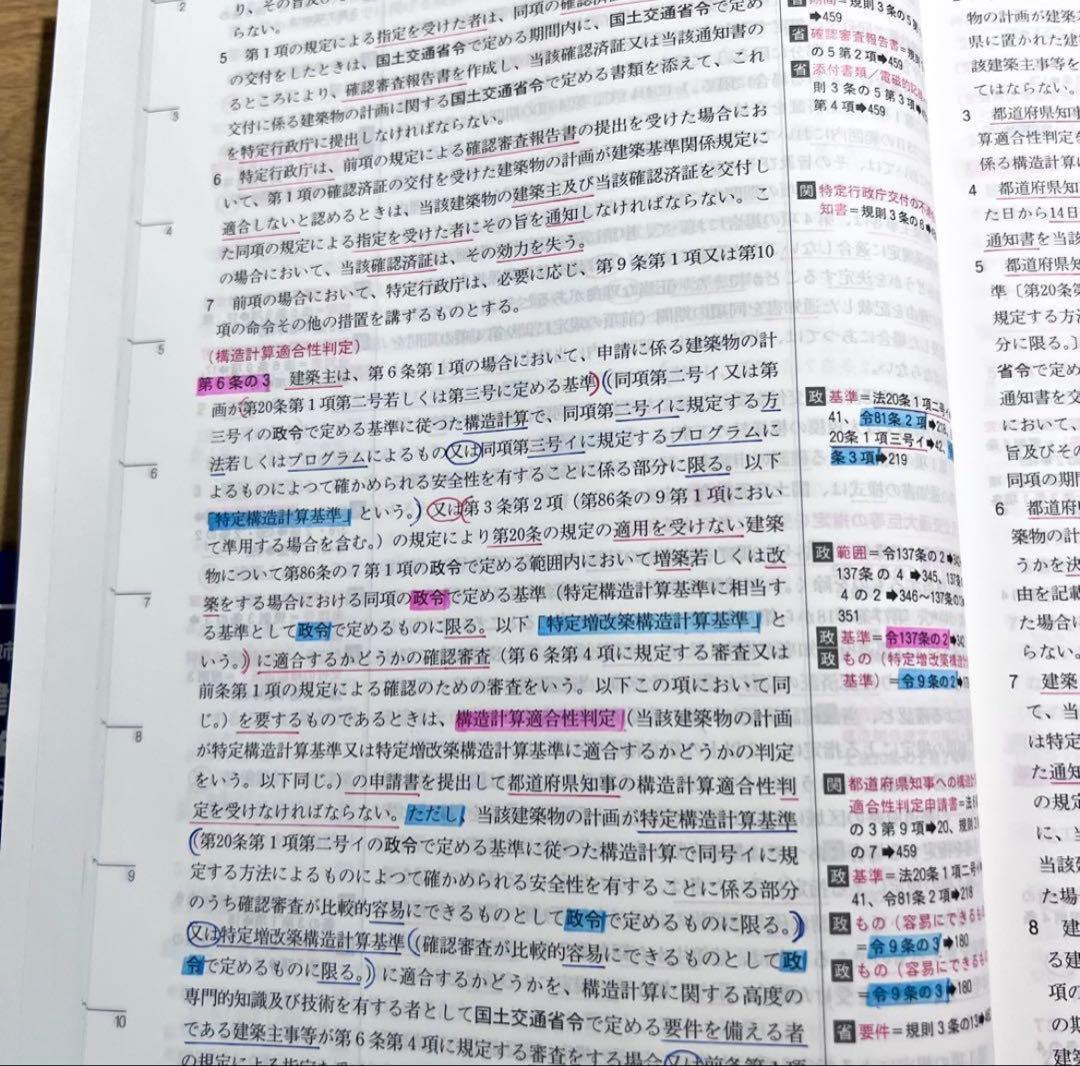 り、その
らない。
5 第1項の規定による指定を受けた者は、同項の確認済証
の交付をしたときは、国土交通省令で定める期間内に、国土交通省令で定め
るところにより、確認審査報告書を作成し、当該確認済証又は当該通知書の
交付に係る建築物の計画に関する国土交通省令で定める書類を添えて、これ
を特定行政庁に提出しなければならない。
6 特定行政庁は、前項の規定による確認審査報告書の提出を受けた場合にお
いて、第1項の確認済証の交付を受けた建築物の計画が建築基準関係規定に
適合しないと認めるときは、当該建築物の建築主及び当該確認済証を交付し
た同項の規定による指定を受けた者にその旨を通知しなければならない。こ
の場合において、当該確認済証は、その効力を失う。
7 前項の場合において、特定行政庁は、必要に応じ、第9条第1項又は第10
項の命令その他の措置を講ずるものとする。
(構造計算適合性判定)
第6条の3 建築主は、第6条第1項の場合において、申請に係る建築物の計
画が第20条第1項第二号若しくは第三号に定める基準(同項第二号イ又は第
三号イの政令で定める基準に従つた構造計算で、同項第二号イに規定する方
法若しくはプログラムによるもの又は同項第三号イに規定するプログラムに
よるものによつて確かめられる安全性を有することに係る部分に限る。以下
「特定構造計算基準」という。)又は第3条第2項(第86条の9第1項におい
て準用する場合を含む。)の規定により第20条の規定の適用を受けない建築
物について第86条の7第1項の政令で定める範囲内において増築若しくは改
築をする場合における同項の政令で定める基準(特定構造計算基準に相当す
る基準として政令で定めるものに限る。以下「特定増改築構造計算基準」と
いう。)に適合するかどうかの確認審査(第6条第4項に規定する審査又は
前条第1項の規定による確認のための審査をいう。以下この項において同
じ。)を要するものであるときは、構造計算適合性判定(当該建築物の計画
が特定構造計算基準又は特定増改築構造計算基準に適合するかどうかの判定
をいう。以下同じ。)の申請書を提出して都道府県知事の構造計算適合性判
定を受けなければならない。ただし、当該建築物の計画が特定構造計算基準
(第20条第1項第二号イの政令で定める基準に従つた構造計算で同号イに規
定する方法によるものによつて確かめられる安全性を有することに係る部分
のうち確認審査が比較的容易にできるものとして政令で定めるものに限る。)
又は特定増改築構造計算基準(確認審査が比較的容易にできるものとして政
令で定めるものに限る。)に適合するかどうかを、構造計算に関する高度の
専門的知識及び技術を有する者として国土交通省令で定める要件を備える者
である建築主事等が第6条第4項に規定する審査をする場合又は前条第1項
2
3
4
5
6
7
8
9
10
省 期間=規則3条の5第
➡459
省 確認審査報告書=規
の5第2項➡459
省 添付書類/電磁的記
則3条の5第3項
第4項➡459
関 特定行政庁交付の不
知書=規則3条の6➡
政 基準=法20条1項二号
41、令81条2項➡218、
20条1項三号イ➡42、
条3項➡219
政 範囲=令137条の2➡
137条の4➡345、137
4の2➡346~137条の
351
政 基準=令137条の2➡
政 もの(特定増改築構造
基準)=令9条の2➡
関 都道府県知事への構造
適合性判定申請書=法
の3第9項➡20、規則
の7➡459
政 基準=法20条1項二号
41、令81条2項➡218
政 もの(容易にできる
=令9条の3➡180
政 もの(容易にできる
=令9条の3➡180
省 要件=規則3条の13➡
物の計画が建築
県に置かれた建
該建築主事等を
てはならない。
3 都道府県知事
算適合性判定を
係る構造計算
4 都道府県知
た日から14日
通知書を当該
5 都道府県知
準〔第20条第
規定する方法
分に限る。〕
省令で定め
通知書を交
において、
旨及びその
同項の期間
6 都道府県
築物の計
うかを決
由を記載
た場合に
らない。
7 建築
て、当
は特定
た通知
の規定
に、当
当該
た場
8 建
る建
項の
の期
建築